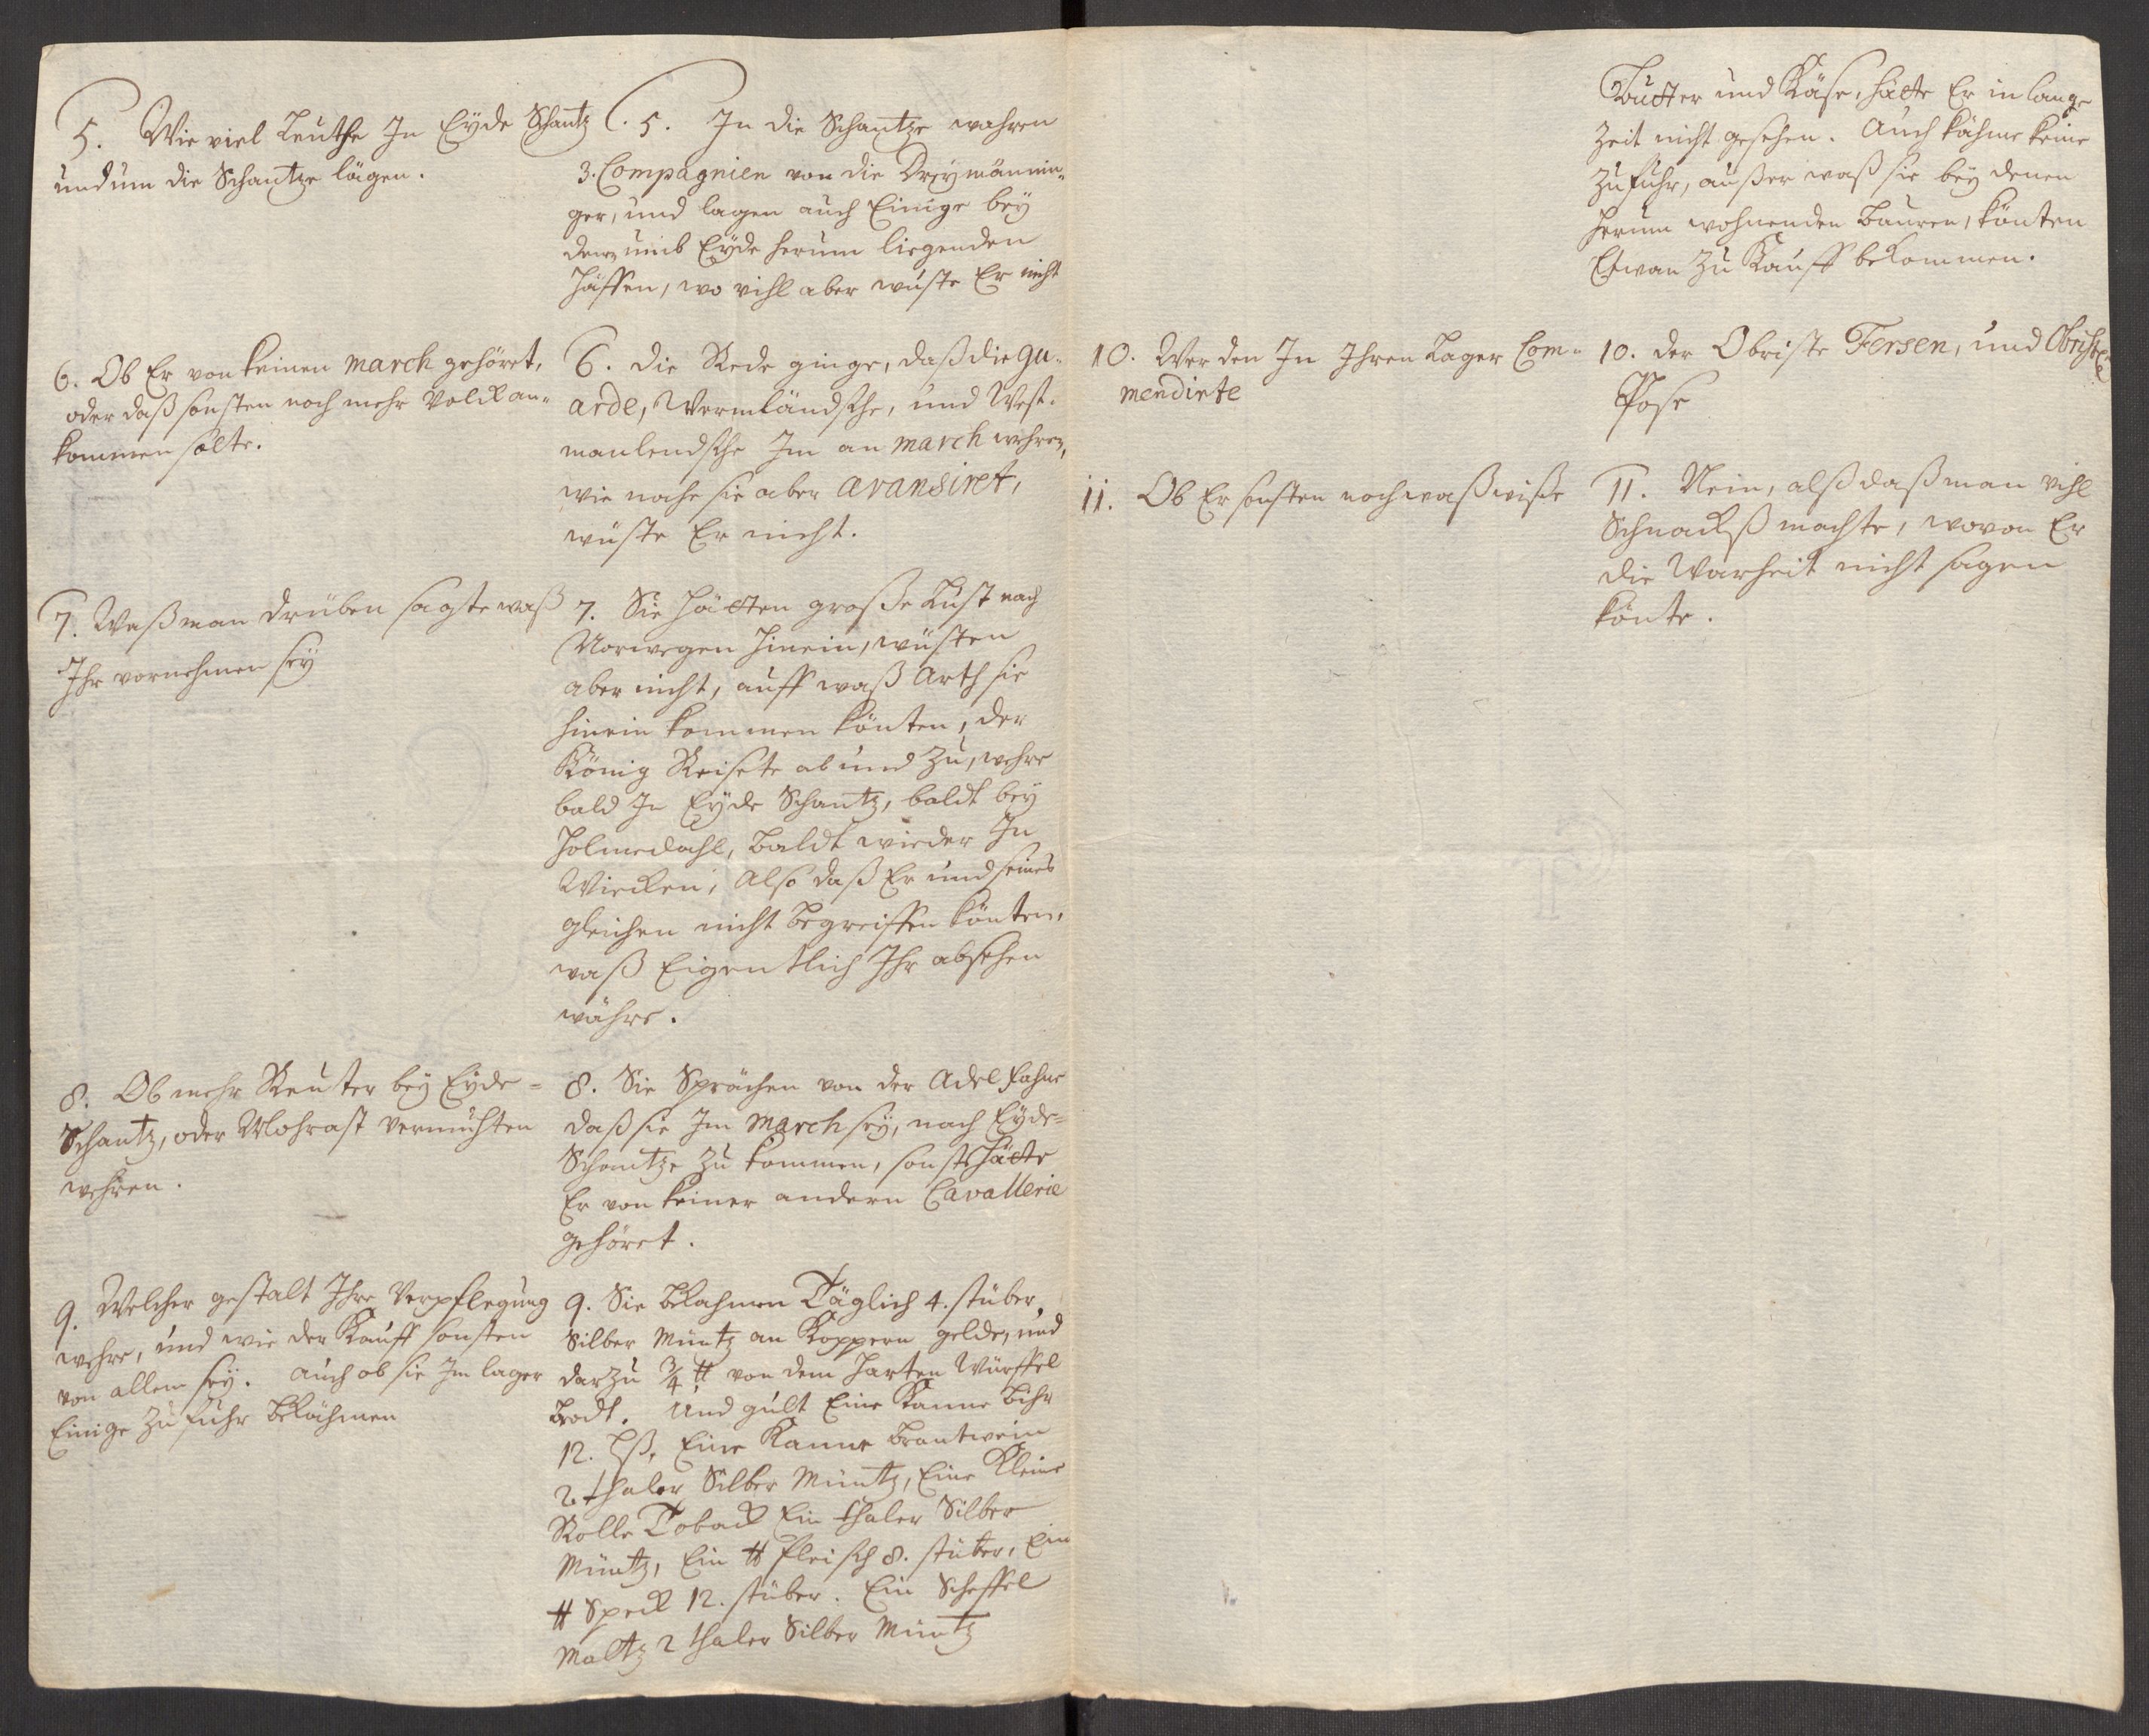 5. Wie viel Leuthe In Eyde Schantz
und um die Schantze lägen.
5. In die Schantze wahren
3. Compagnien von die Dreymännin-
ger, und lagen auch Einige bey
denen umb Eyde herum liegenden
Höffen, wo vihl aber wuste Er nicht
6. Ob Er von keinen march gehöret,
oder daß sonsten noch mehr Volck an-
kommen solte.
6. Die Rede ginge, daß die gu-
arde, Wermländsche, und West-
manlendsche Im an march wehren,
wie nahe sie aber avansiret,
wüste Er nicht.
7. Waß man drüben sagte waß
Ihr vornehmen sey
7. Sie hätten große Lust nach
Norwegen hinein, wüsten
aber nicht, auff waß Arth sie
hinein kommen könten, der
König Reisete ab und zu, wehre
bald In Eyde Schantz, baldt bey
Holmedahl, baldt wieder In
Wiecken, Also daß Er und seines
gleichen nicht begreiffen könten,
waß Eigentlich Ihr absehen
währe.
8. Ob mehr Reuter bey Eyde-
Schantz, oder Mohrast vermuhten
wehren.
8. Sie Sprächen von der Adelfahne
daß sie Im march sey, nach Eyde-
Schantze zu kommen, sonst hätte
Er von keiner andern Cavallerie
gehöret.
9. Welcher gestalt Ihre Verpflegung
wehre, und wie der Kauff sonsten
von allem sey. auch ob sie Im lager
Einige Zufuhr bekähmen
9. Sie bekahmen Täglich 4. stüber
Silber Müntz an Koppern gelde, und
darzu 3/4 ℔ von dem harten Würffel
brodt. Und gült Eine Kanne bihr
12. lß, Eine Kanne brantwein
2. thaler Silber Müntz, Eine Kleine
Rolle Toback Ein thaler Silber
Müntz, Ein ℔ fleisch 8. stüber, Ein
℔ Speck 12. stüber. Ein Scheffel
Maltz 2 thaler Silber Müntz
Butter und Käse, hätte Er in lange
Zeit nicht gesehen. Auch kähme keine
Zufuhr, außer waß sie bey denen
herum wohnenden bauren, könten
Etwan zu Kauff bekommen.
10. Wer den In Ihren Lager Com-
mendirte
10. der Obriste Fersen, und Obrister
Pose
11. Ob Er sonsten noch waß wiße
11. Nein, alß daß man vihl
Schnackß machte, wovon Er
die Warheit nicht sagen
könte.